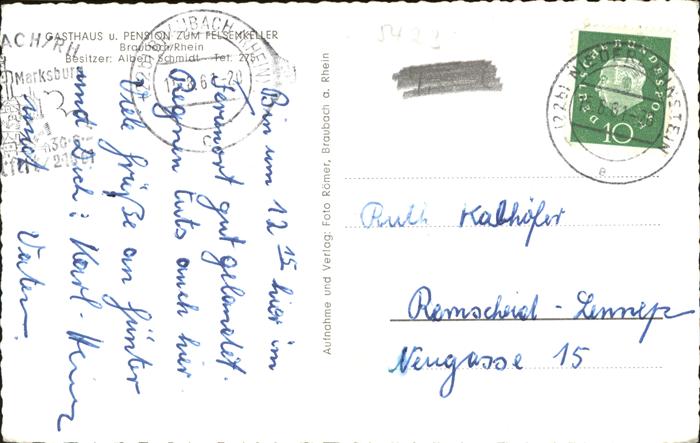 GASTHAUS u. PENSION ZUM FELSENKELLER
Braubach/Rhein
Besitzer: Albert Schmidt - Tel. 275
BRAUBACH (RHEIN)
ACH/RH
Marksburg
Bin um 12 15 hier im
Ferienort gut gelandet.
Regnen tuts auch hier.
Viele Grüße an Günter
und Dich: Karl-Heinz
und Vater.
Aufnahme und Verlag: Foto Römer, Braubach a. Rhein
5422
DEUTSCHE BUNDESPOST
10
(22b) NIEDERLAHNSTEIN
e
Ruth Kalhöfer
Remscheid-Lennep
Neugasse 15